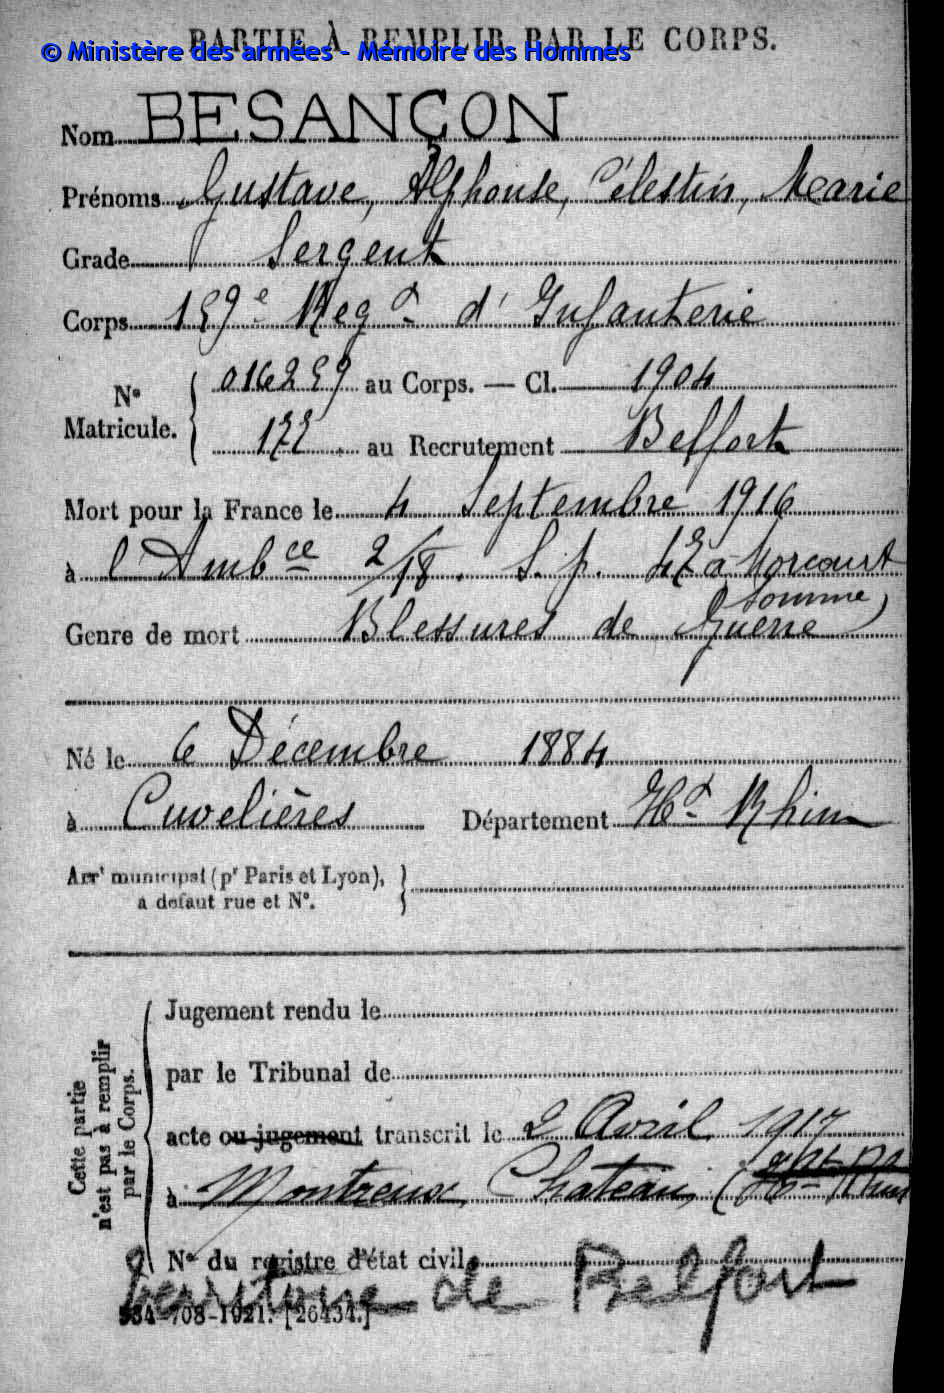 PARTIE À REMPLIR PAR LE CORPS.
© Ministère des armées - Mémoire des Hommes
Nom BESANÇON
Prénoms Gustave, Alphonse, Célestin, Marie
Grade Sergent
Corps 159e Regt d'Infanterie
No Matricule. { 016259 au Corps. — Cl. 1904
177 au Recrutement Belfort
Mort pour la France le 4 Septembre 1916
à l'Ambce 2/18. S.p. 47 à Morcourt
(Somme)
Genre de mort Blessures de Guerre
Né le 6 Décembre 1884
à Cuvelières Département Ht Rhin
Arrt municipal (pr Paris et Lyon),
à défaut rue et No.
Cette partie n'est pas à remplir par le Corps.
Jugement rendu le
par le Tribunal de
acte ou jugement transcrit le 2 Avril 1917
à Montreux Château, (Ht Rhin
No du registre d'état civil
Territoire de Belfort
534-708-1921. [26434.]